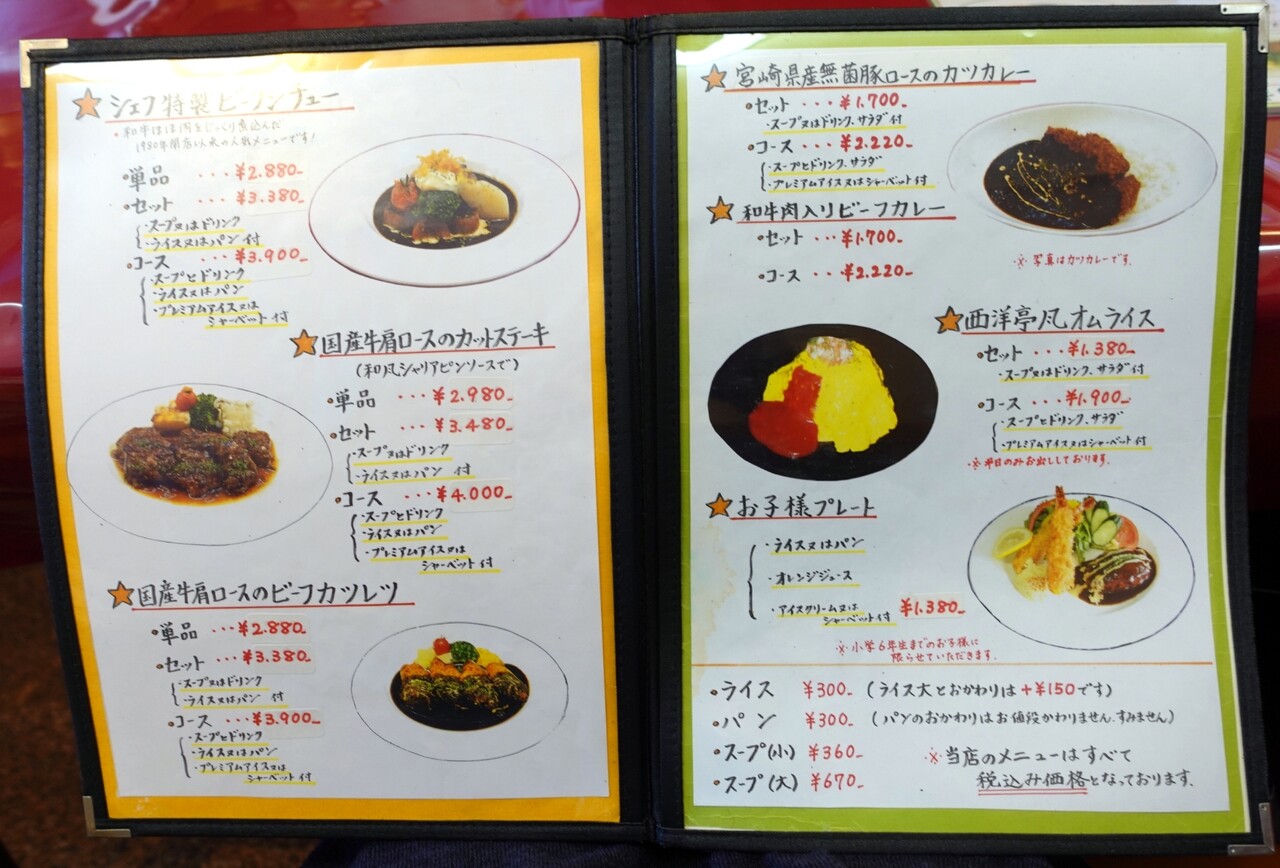 シェフ特製ビーフシチュー
・和牛ほほ肉をじっくり煮込んだ
1980年開店以来の人気メニューです!
・単品 ・・・¥2.880-
・セット ・・・¥3.380-
・スープ又はドリンク
・ライス又はパン 付
・コース ・・・¥3.900-
・スープとドリンク
・ライス又はパン
・プレミアムアイス又は
シャーベット 付
国産牛肩ロースのカットステーキ
(和風シャリアピンソースで)
・単品 ・・・¥2.980-
・セット ・・・¥3.480-
・スープ又はドリンク
・ライス又はパン 付
・コース ・・・¥4.000-
・スープとドリンク
・ライス又はパン
・プレミアムアイス又は
シャーベット 付
国産牛肩ロースのビーフカツレツ
・単品 ・・・¥2.880-
・セット ・・・¥3.380-
・スープ又はドリンク
・ライス又はパン 付
・コース ・・・¥3.900-
・スープとドリンク
・ライス又はパン
・プレミアムアイス又は
シャーベット 付
宮崎県産無菌豚ロースのカツカレー
・セット ・・・¥1.700-
・スープ又はドリンク、サラダ付
・コース ・・・¥2.220-
・スープとドリンク、サラダ
・プレミアムアイス又はシャーベット付
和牛肉入りビーフカレー
・セット ・・・¥1.700-
・コース ・・・¥2.220-
※ 写真はカツカレーです。
西洋亭風オムライス
・セット ・・・¥1.380-
・スープ又はドリンク、サラダ付
・コース ・・・¥1.900-
・スープとドリンク、サラダ
・プレミアムアイス又はシャーベット付
※平日のみお出ししております。
お子様プレート
・ライス又はパン
・オレンジジュース
・アイスクリーム又は
シャーベット付 ¥1.380-
※小学6年生までのお子様に
限らせていただきます。
・ライス ¥300- (ライス大とおかわりは+¥150です)
・パン ¥300- (パンのおかわりはお値段かわりません、すみません)
・スープ(小) ¥360-
・スープ(大) ¥670-
※当店のメニューはすべて
税込み価格となっております。